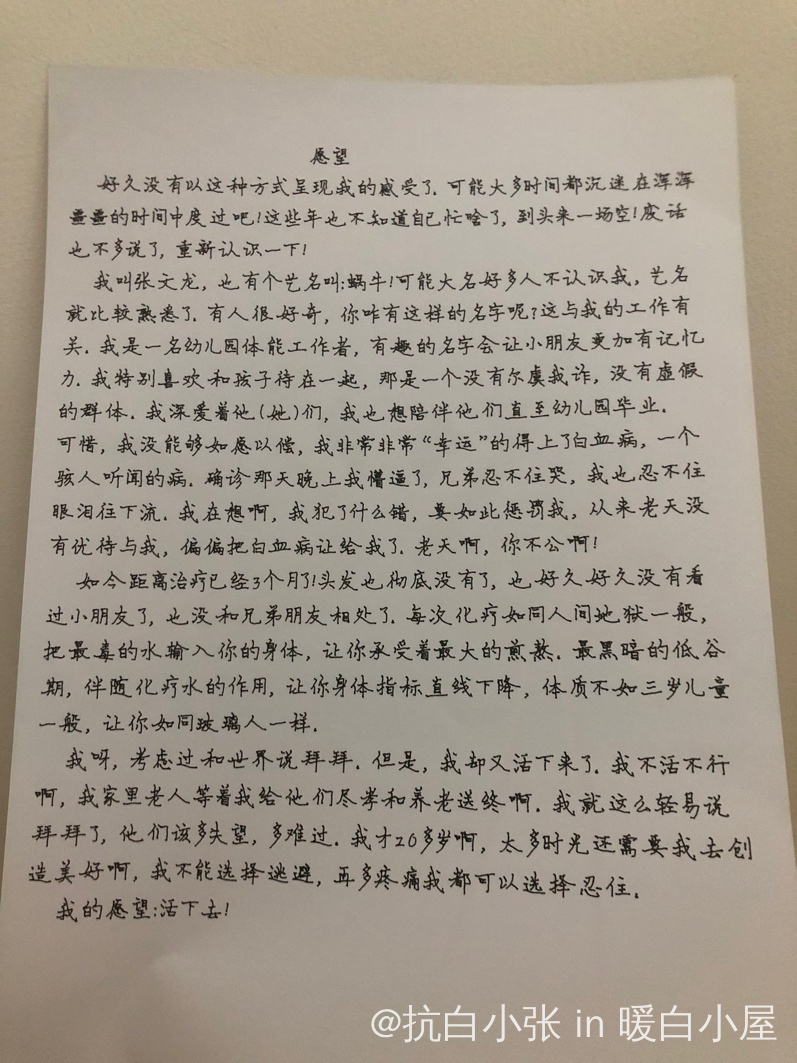 愿望
好久没有以这种方式呈现我的感受了.可能大多时间都沉迷在浑浑
噩噩的时间中度过吧!这些年也不知道自己忙啥了,到头来一场空!废话
也不多说了,重新认识一下!
我叫张文龙,也有个艺名叫:蜗牛!可能大名好多人不认识我,艺名
就比较熟悉了.有人很好奇,你咋有这样的名字呢?这与我的工作有
关.我是一名幼儿园体能工作者,有趣的名字会让小朋友更加有记忆
力.我特别喜欢和孩子待在一起,那是一个没有尔虞我诈,没有虚假
的群体.我深爱着他(她)们,我也想陪伴他们直至幼儿园毕业.
可惜,我没能够如愿以偿,我非常非常“幸运”的得上了白血病,一个
骇人听闻的病.确诊那天晚上我懵逼了,兄弟忍不住哭,我也忍不住
眼泪往下流.我在想啊,我犯了什么错,要如此惩罚我,从来老天没
有优待与我,偏偏把白血病让给我了.老天啊,你不公啊!
如今距离治疗已经3个月了!头发也彻底没有了,也好久好久没有看
过小朋友了,也没和兄弟朋友相处了.每次化疗如同人间地狱一般,
把最毒的水输入你的身体,让你承受着最大的煎熬.最黑暗的低谷
期,伴随化疗水的作用,让你身体指标直线下降,体质不如三岁儿童
一般,让你如同玻璃人一样.
我呀,考虑过和世界说拜拜.但是,我却又活下来了.我不活不行
啊,我家里老人等着我给他们尽孝和养老送终啊.我就这么轻易说
拜拜了,他们该多失望,多难过.我才20多岁啊,太多时光还需要我去创
造美好啊,我不能选择逃避,再多疼痛我都可以选择忍住.
我的愿望:活下去!
@抗白小张 in 暖白小屋